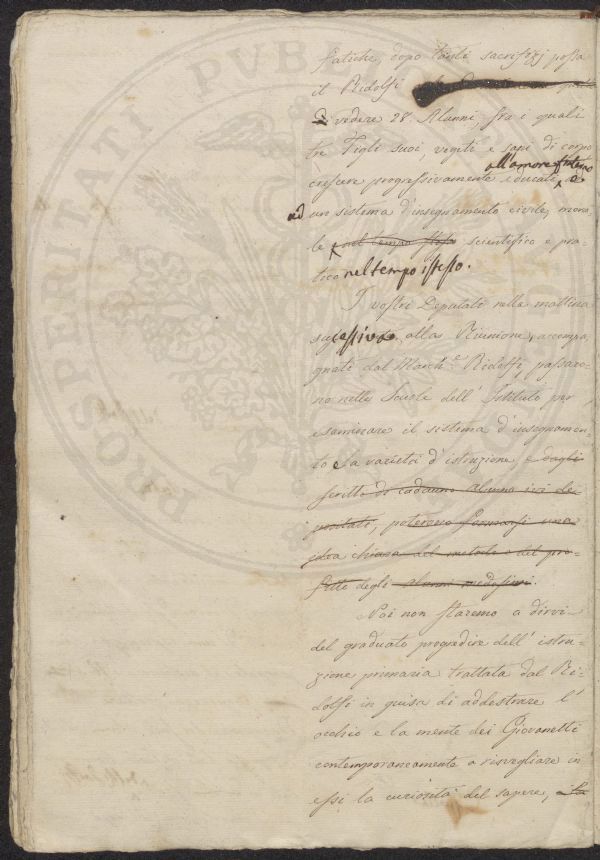 fatiche, dopo tanti sacrifizj possa
il Ridolfi
vedere 28. Alunni, fra i quali
tre Figli suoi, vegeti e sani di corpo
all'amore fraterno
crescere progressivamente educati e
ad un sistema d'insegnamento civile, mora-
le nel tempo stesso scientifico e pra-
tico nel tempo istesso.
I vostri Deputati nella mattina
successiva alla Riunione, accompa-
gnati dal March.e Ridolfi, passaro-
no nelle Scuole dell'Istituto per
esaminare il sistema d'insegnamen-
to e la varietà d'istruzione e dagli
scritti di cadauno alunno ivi de-
positati, poterono formarsi una
idea chiara del metodo e del pro-
fitto degli alunni medesimi.
Noi non staremo a dirvi
del graduato progredire dell'istru-
zione primaria trattata dal Ri-
dolfi in guisa di addestrare l'
occhio e la mente dei Giovanetti
contemporaneamente a risvegliare in
essi la curiosità del sapere,
PROSPERITATI PUBLI